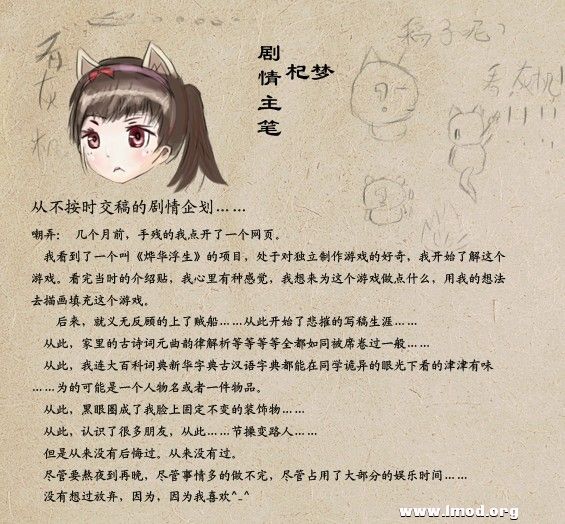 剧情主笔
杞梦
稿子呢
从不按时交稿的剧情企划……
嘲弄： 几个月前，手残的我点开了一个网页。
我看到了一个叫《烨华浮生》的项目，处于对独立制作游戏的好奇，我开始了解这个
游戏。看完当时的介绍贴，我心里有种感觉，我想来为这个游戏做点什么，用我的想法
去描画填充这个游戏。
后来，就义无反顾的上了贼船……从此开始了悲摧的写稿生涯……
从此，家里的古诗词元曲韵律解析等等等等全都如同被席卷过一般……
从此，我连大百科词典新华字典古汉语字典都能在同学诡异的眼光下看的津津有味
……为的可能是一个人物名或者一件物品。
从此，黑眼圈成了我脸上固定不变的装饰物……
从此，认识了很多朋友，从此……节操变路人……
但是从来没有后悔过。从来没有过。
尽管要熬夜到再晚，尽管事情多的做不完，尽管占用了大部分的娱乐时间……
没有想过放弃，因为，因为我喜欢^_^
www.lmod.org